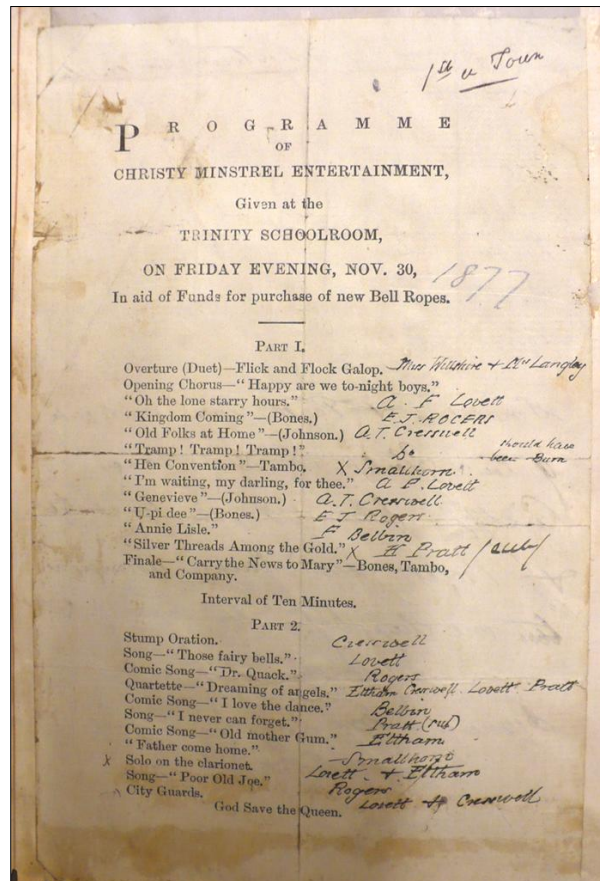 1st a Town
PROGRAMME
OF
CHRISTY MINSTREL ENTERTAINMENT,
Given at the
TRINITY SCHOOLROOM,
ON FRIDAY EVENING, NOV. 30, 1877
In aid of Funds for purchase of new Bell Ropes.
PART I.
Overture (Duet)—Flick and Flock Galop. Miss Willshire & Langley
Opening Chorus—"Happy are we to-night boys."
"Oh the lone starry hours." A. F Lovett
"Kingdom Coming"—(Bones.) E.J. ROGERS
"Old Folks at Home"—(Johnson.) A.T. Cresswell
"Tramp! Tramp! Tramp!" Do should have
been
"Hen Convention"—Tambo. X Smallhorn.
"I'm waiting, my darling, for thee." A F. Lovett
"Genevieve"—(Johnson.) A.T. Cresswell.
"U-pi dee"—(Bones.) E J Rogers
"Annie Lisle." F Belbin
"Silver Threads Among the Gold." X H Pratt
Finale—"Carry the News to Mary"—Bones, Tambo,
and Company.
Interval of Ten Minutes.
PART 2.
Stump Oration. Cresswell
Song—"Those fairy bells." Lovett
Comic Song—"Dr. Quack." Rogers
Quartette—"Dreaming of angels." Eltham Creswell Lovett Pratt
Comic Song—"I love the dance." Belbin
Song—"I never can forget." Pratt
Comic Song—"Old mother Gum." Eltham
"Father come home."
X Solo on the clarionet. Smallhorn
Song—"Poor Old Joe." Lovett & Eltham
City Guards. Rogers
God Save the Queen. Lovett & Cresswell